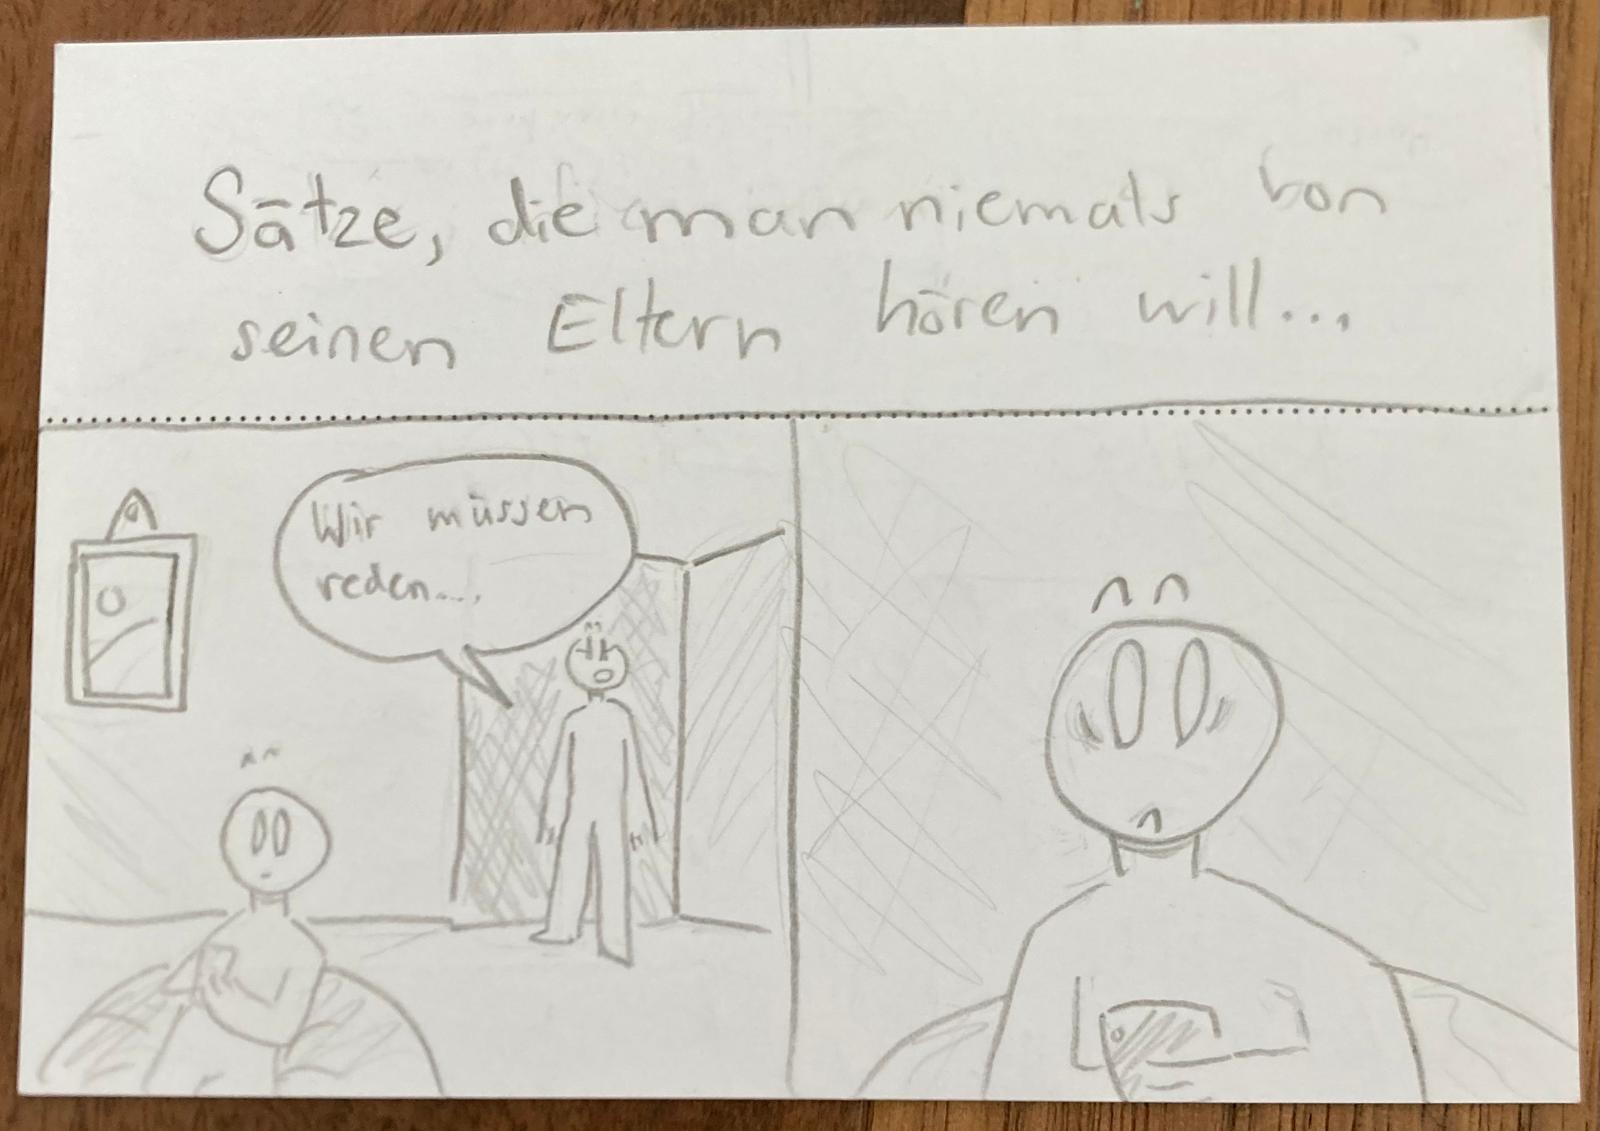 Sätze, die man niemals von
seinen Eltern hören will...
Wir müssen
reden....